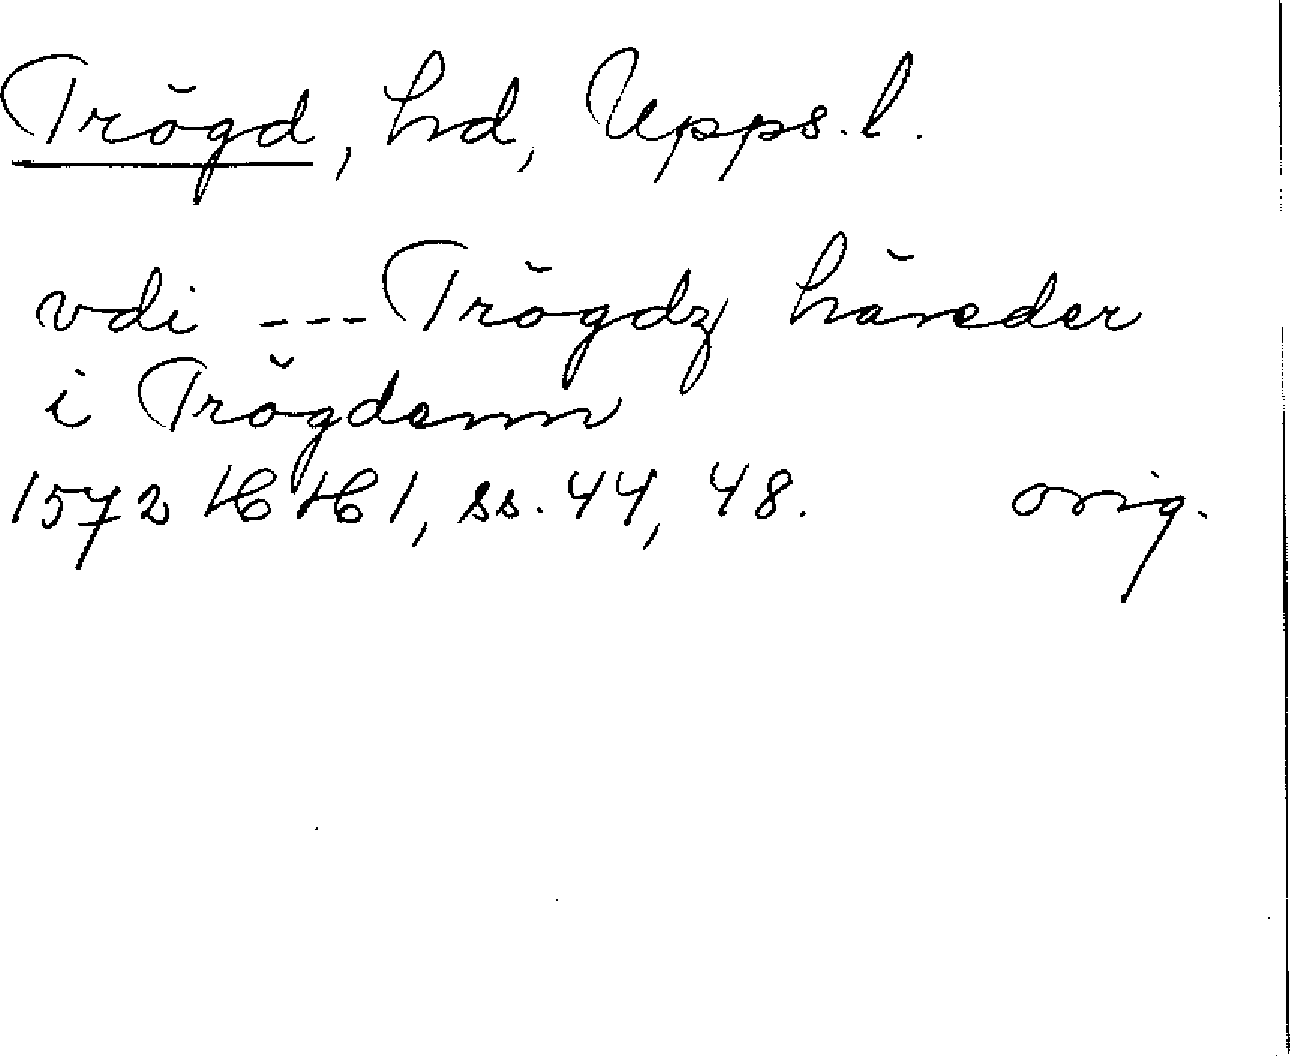 Trögd, hd, Upps. l.
vdi --- Trögdz häreder
i Trögdenn
1572 HH 1, ss. 44, 48. orig.